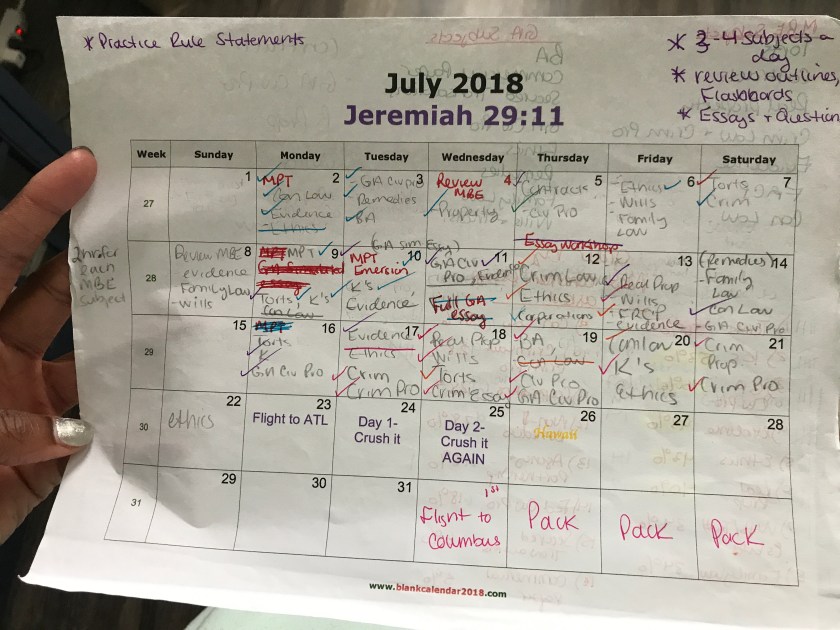 * Practice Rule Statements
GA Subjects
BA
* 3 4 Subjects a
day
* review outlines,
Flashbards
* Essays + Question
July 2018
Jeremiah 29:11
Week Sunday Monday Tuesday Wednesday Thursday Friday Saturday
27
1
2
MPT
Con Law
Evidence
Ethics
3
GA Civ pro
Remedies
BA
4
Review
MBE
Property
5
Contracts
- Civ Pro
6
- Ethics
- Wills
- Family
Law
7
Torts
Crim
2hrs for
each
MBE
subject
28
8
Review MBE
evidence
Family Law
- Wills
9
MPT MPT
Essay
Torts, K's
Con Law
10
(GA sim Essay)
MPT
Emersion
K's
Evidence
11
GA Civ
Pro, Evidence
Full GA
essay
12
Essay Workshop
Crim Law
Ethics
Corporations
13
Real Prop
Wills
- FRCP
evidence
14
(Remedies)
- Family
Law
Con Law
- GA Civ Pro
29
15
16
MPT
Torts
K
GA Civ Pro
17
Evidence
Ethics
Crim
Crim Pro
18
Real Prop
Wills
Torts
Crim Essay
19
BA
Con Law
Civ Pro
GA Civ Pro
20
Con law
K's
Ethics
21
Crim
Prop
Crim Pro
30
22
ethics
23
Flight to ATL
24
Day 1-
Crush it
25
Day 2-
Crush it
AGAIN
26
Hawaii
27
28
31
29
30
31
1st
Flight to
Columbus
Pack
Pack
Pack
www.blankcalendar2018.com